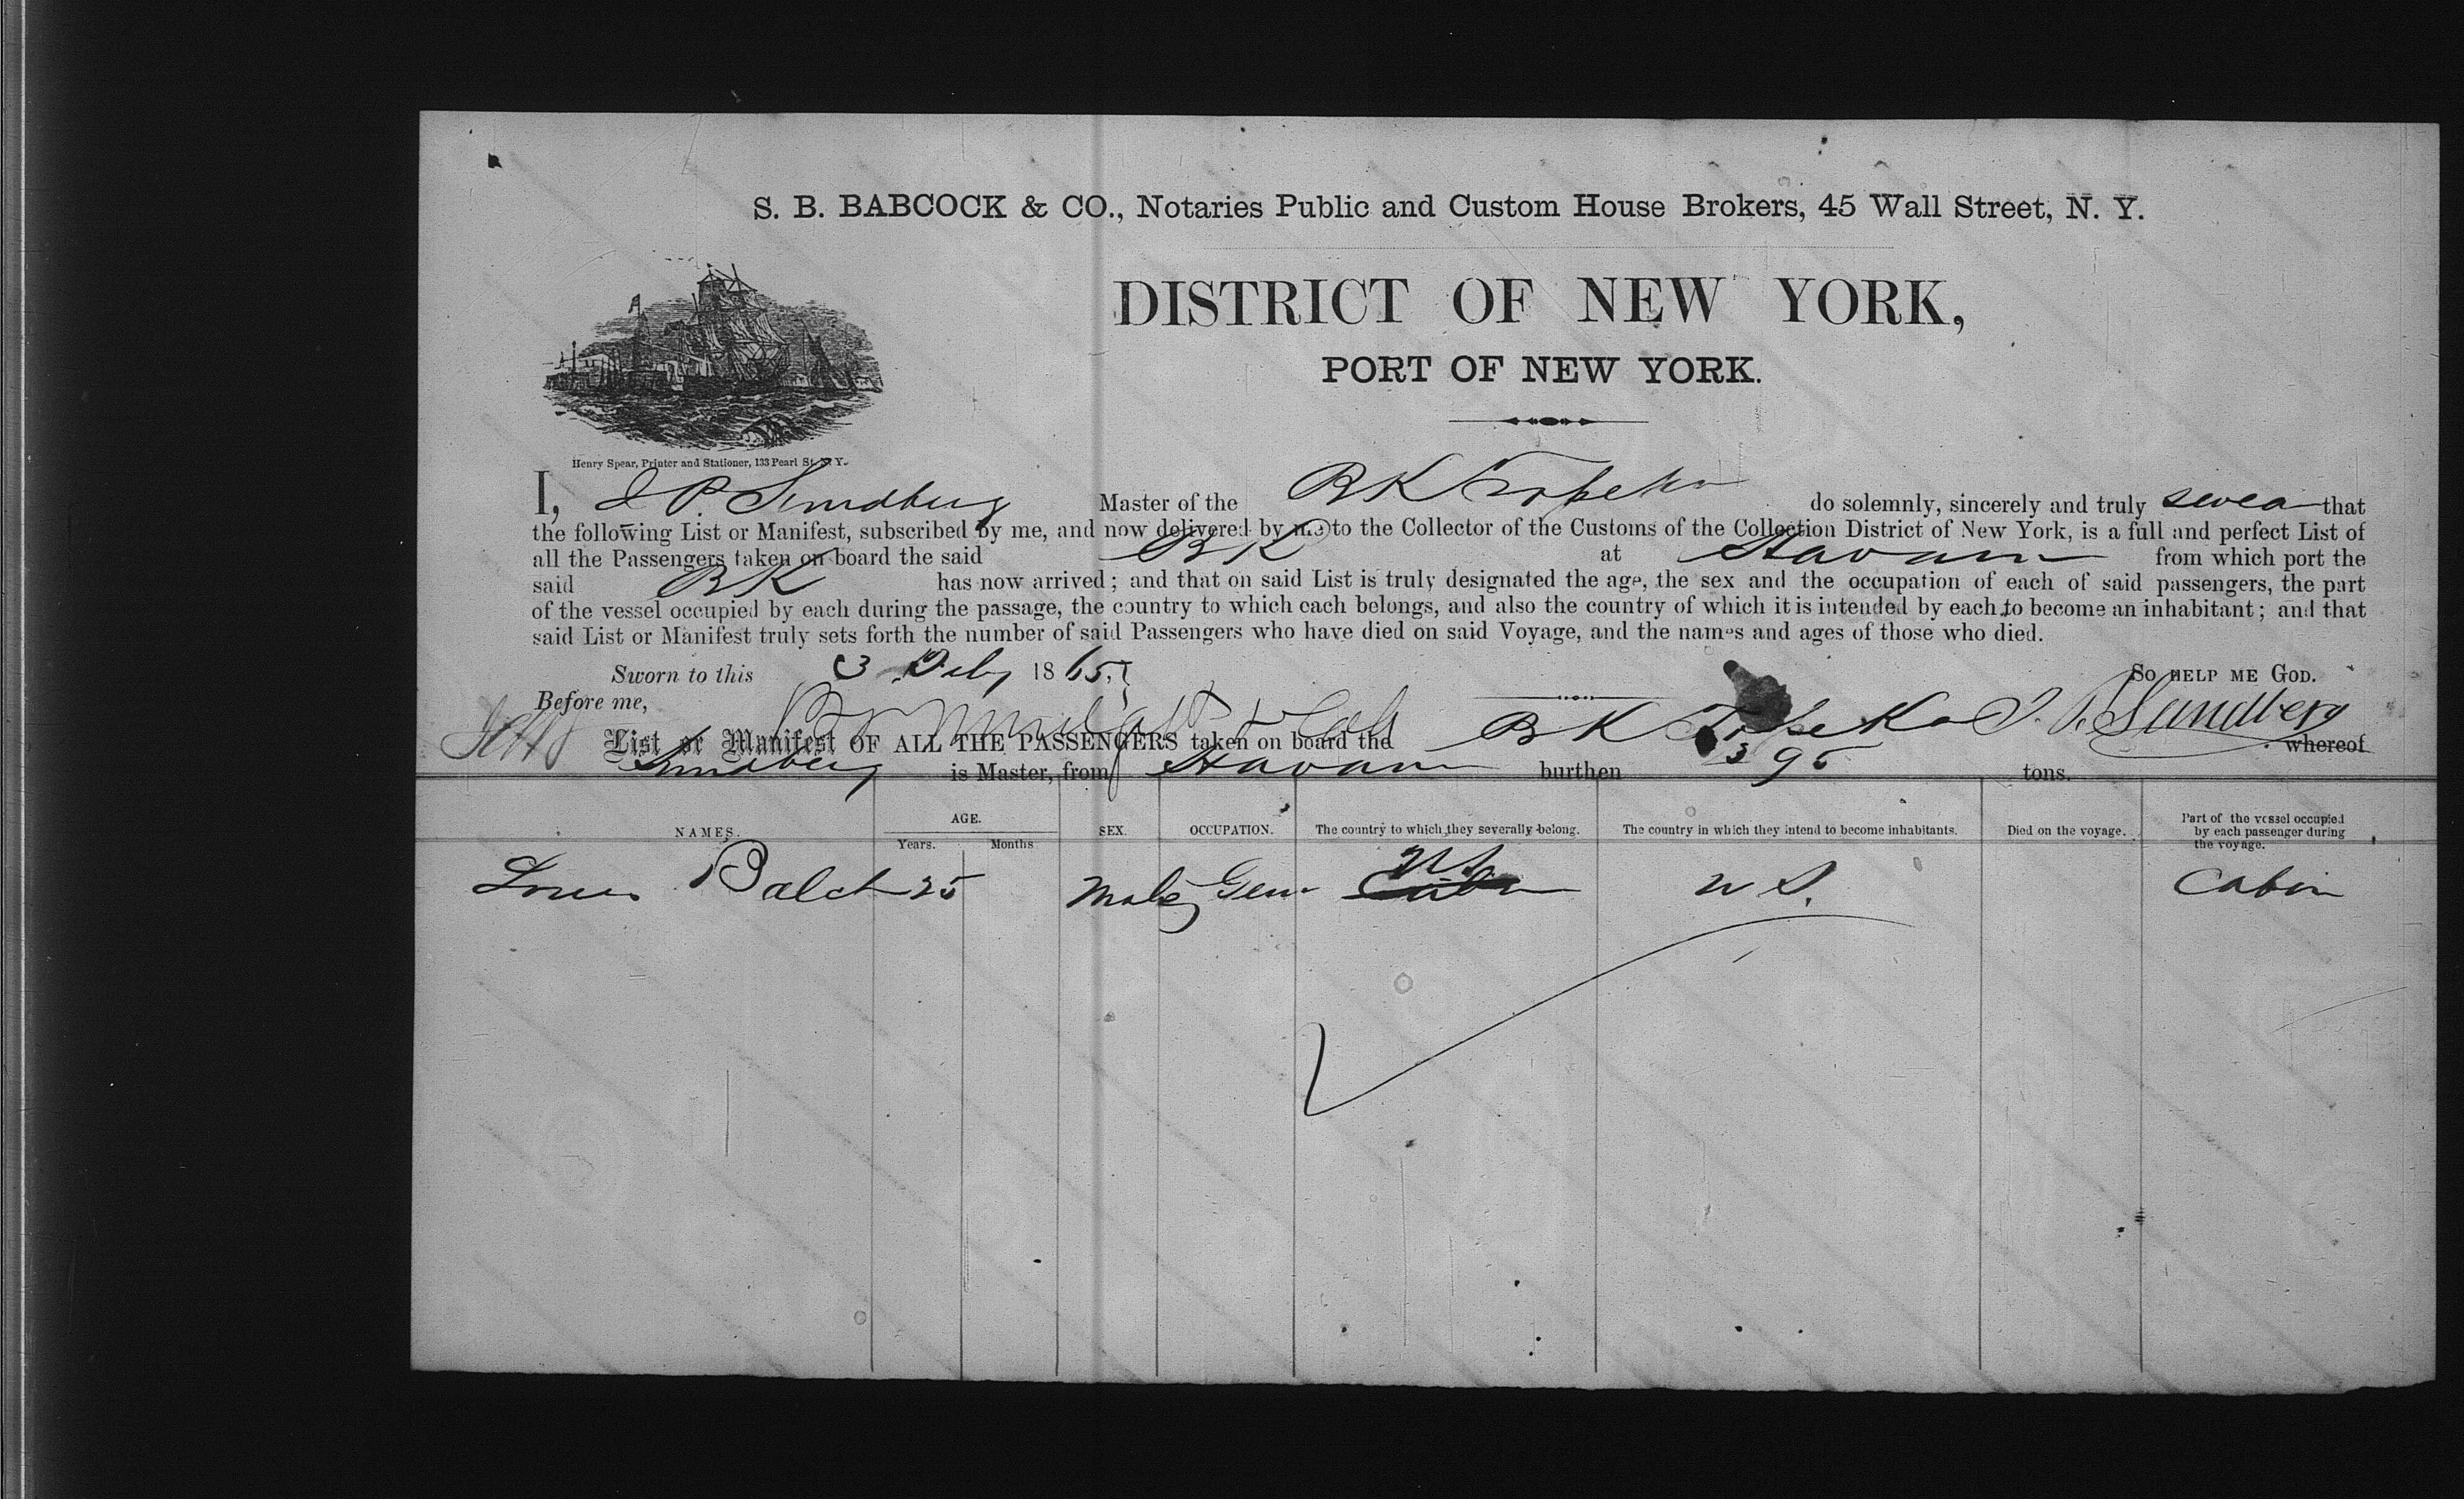 S. B. BABCOCK & CO., Notaries Public and Custom House Brokers, 45 Wall Street, N. Y.
DISTRICT OF NEW YORK,
PORT OF NEW YORK.
Henry Spear, Printer and Stationer, 133 Pearl St. N. Y.
I, J P. Sundberg Master of the BK Topeka do solemnly, sincerely and truly swear that
the following List or Manifest, subscribed by me, and now delivered by me to the Collector of the Customs of the Collection District of New York, is a full and perfect List of
all the Passengers taken on board the said BK at Havana from which port the
said BK has now arrived; and that on said List is truly designated the age, the sex and the occupation of each of said passengers, the part
of the vessel occupied by each during the passage, the country to which each belongs, and also the country of which it is intended by each to become an inhabitant; and that
said List or Manifest truly sets forth the number of said Passengers who have died on said Voyage, and the names and ages of those who died.
Sworn to this 3 July 1865. So HELP ME GOD.
Before me, J. P. Sundberg
List or Manifest OF ALL THE PASSENGERS taken on board the BK Topeka whereof
Sundberg is Master, from Havana burthen 395 tons.
NAMES. AGE. Years. Months SEX. OCCUPATION. The country to which they severally belong. The country in which they intend to become inhabitants. Died on the voyage. Part of the vessel occupied by each passenger during the voyage.
Louis Balch 25 Male Gen US Cuba U S. Cabin